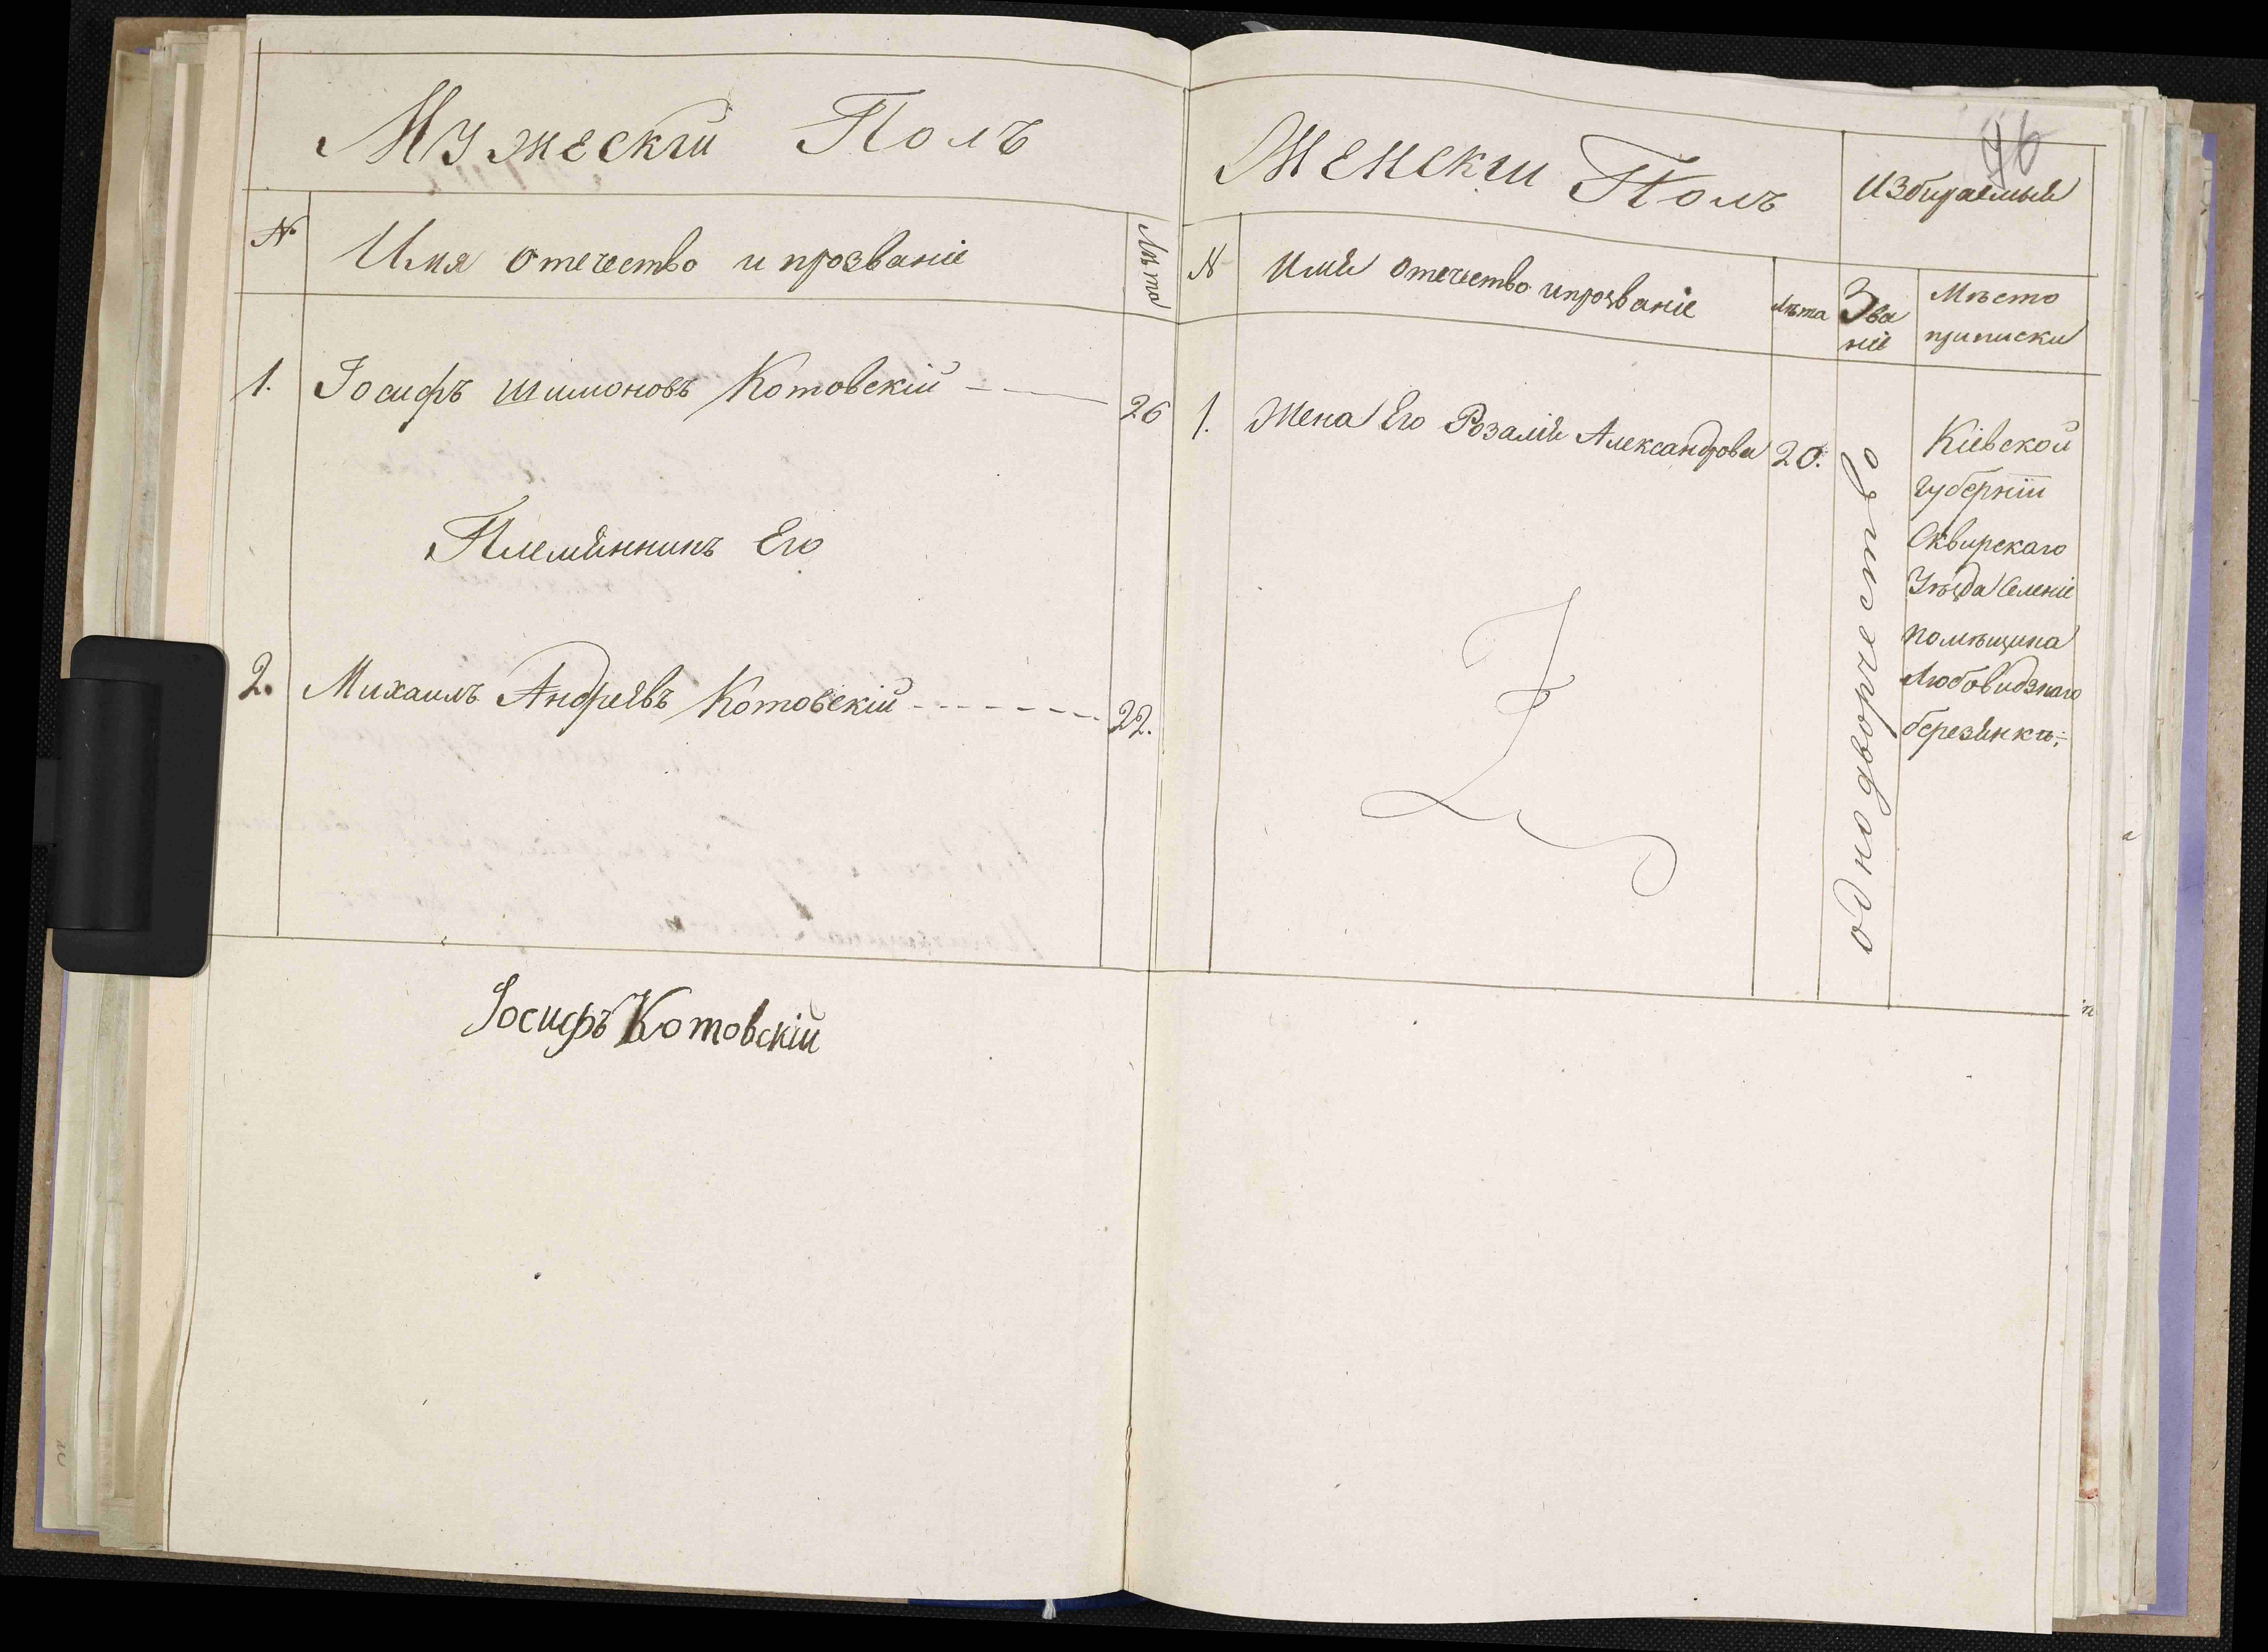 Мужескій Полъ
№ Имя отечество и прозваніе Лѣта
1. Іосифъ Шимоновъ Котовскій 26
Племянникъ Его
2. Михаилъ Андреявъ Котовскій 22.
Іосифъ Котовскій
46
Женскій Полъ
Избираемый
№ Имя отечество и прозваніе Лѣта
Зва
ніе
Мѣсто
приписки
1. Жена Его Розалія Александрова 20.
однодворчество
Кіевской
губерніи
Сквирскаго
Уѣзда Селеніе
помѣщика
Любовидзкаго
березянкѣ;